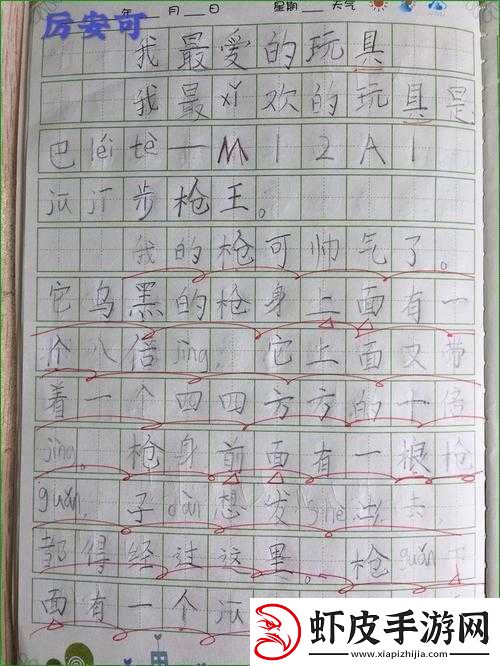 年 月 日 星期 天气
厉安可
我最爱的玩具
我最xǐ欢的玩具是
巴léi tè一M12A1
jū jī步枪王。
我的枪可帅气了。
它乌黑的枪身上面有一
个八倍jìng，它上面又带
着一个四四方方的十倍
jìng。枪身前面有一根枪
guǎn，子dàn想发shè出去，
都得经过这里。枪guǎn下
面有一个
虾皮手游网
www.xiapizhijia.com